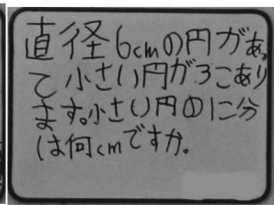 直径6cmの円があっ
て小さい円が3こあり
ます。小さい円の1こ分
は何cmですか。